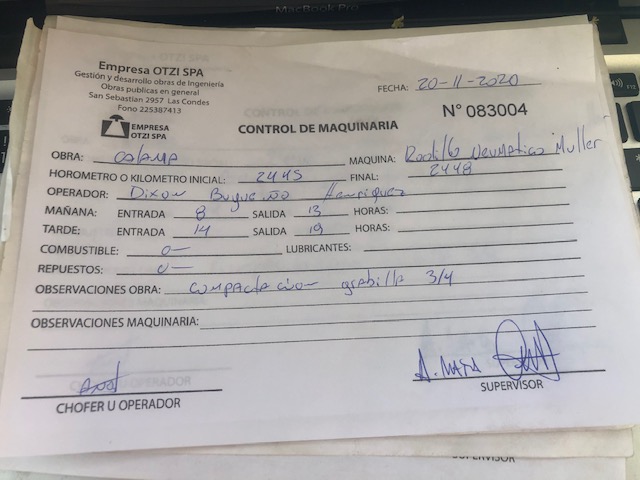 Empresa OTZI SPA
Gestión y desarrollo obras de Ingeniería
Obras publicas en general
San Sebastian 2957 Las Condes
Fono 225387413
EMPRESA
OTZI SPA
FECHA: 20-11-2020
CONTROL DE MAQUINARIA
N° 083004
OBRA: MAQUINA: Rodillo Neumatico Muller
HOROMETRO O KILOMETRO INICIAL: 2445 FINAL: 2448
OPERADOR: Dixon Henriquez
MAÑANA: ENTRADA 8 SALIDA 13 HORAS:
TARDE: ENTRADA 14 SALIDA 19 HORAS:
COMBUSTIBLE: 0- LUBRICANTES:
REPUESTOS: 0-
OBSERVACIONES OBRA: compactacion gravilla 3/4
OBSERVACIONES MAQUINARIA:
CHOFER U OPERADOR
SUPERVISOR
SUPERVISOR
MacBook Pro